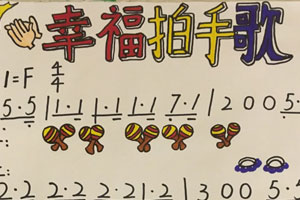 幸福拍手歌
1=F 4/4
5·5 | 1·1 1·1 7·1 | 2 0 0 5·5
2·2 2·2 2·1 2 | 3 0 0 5·5